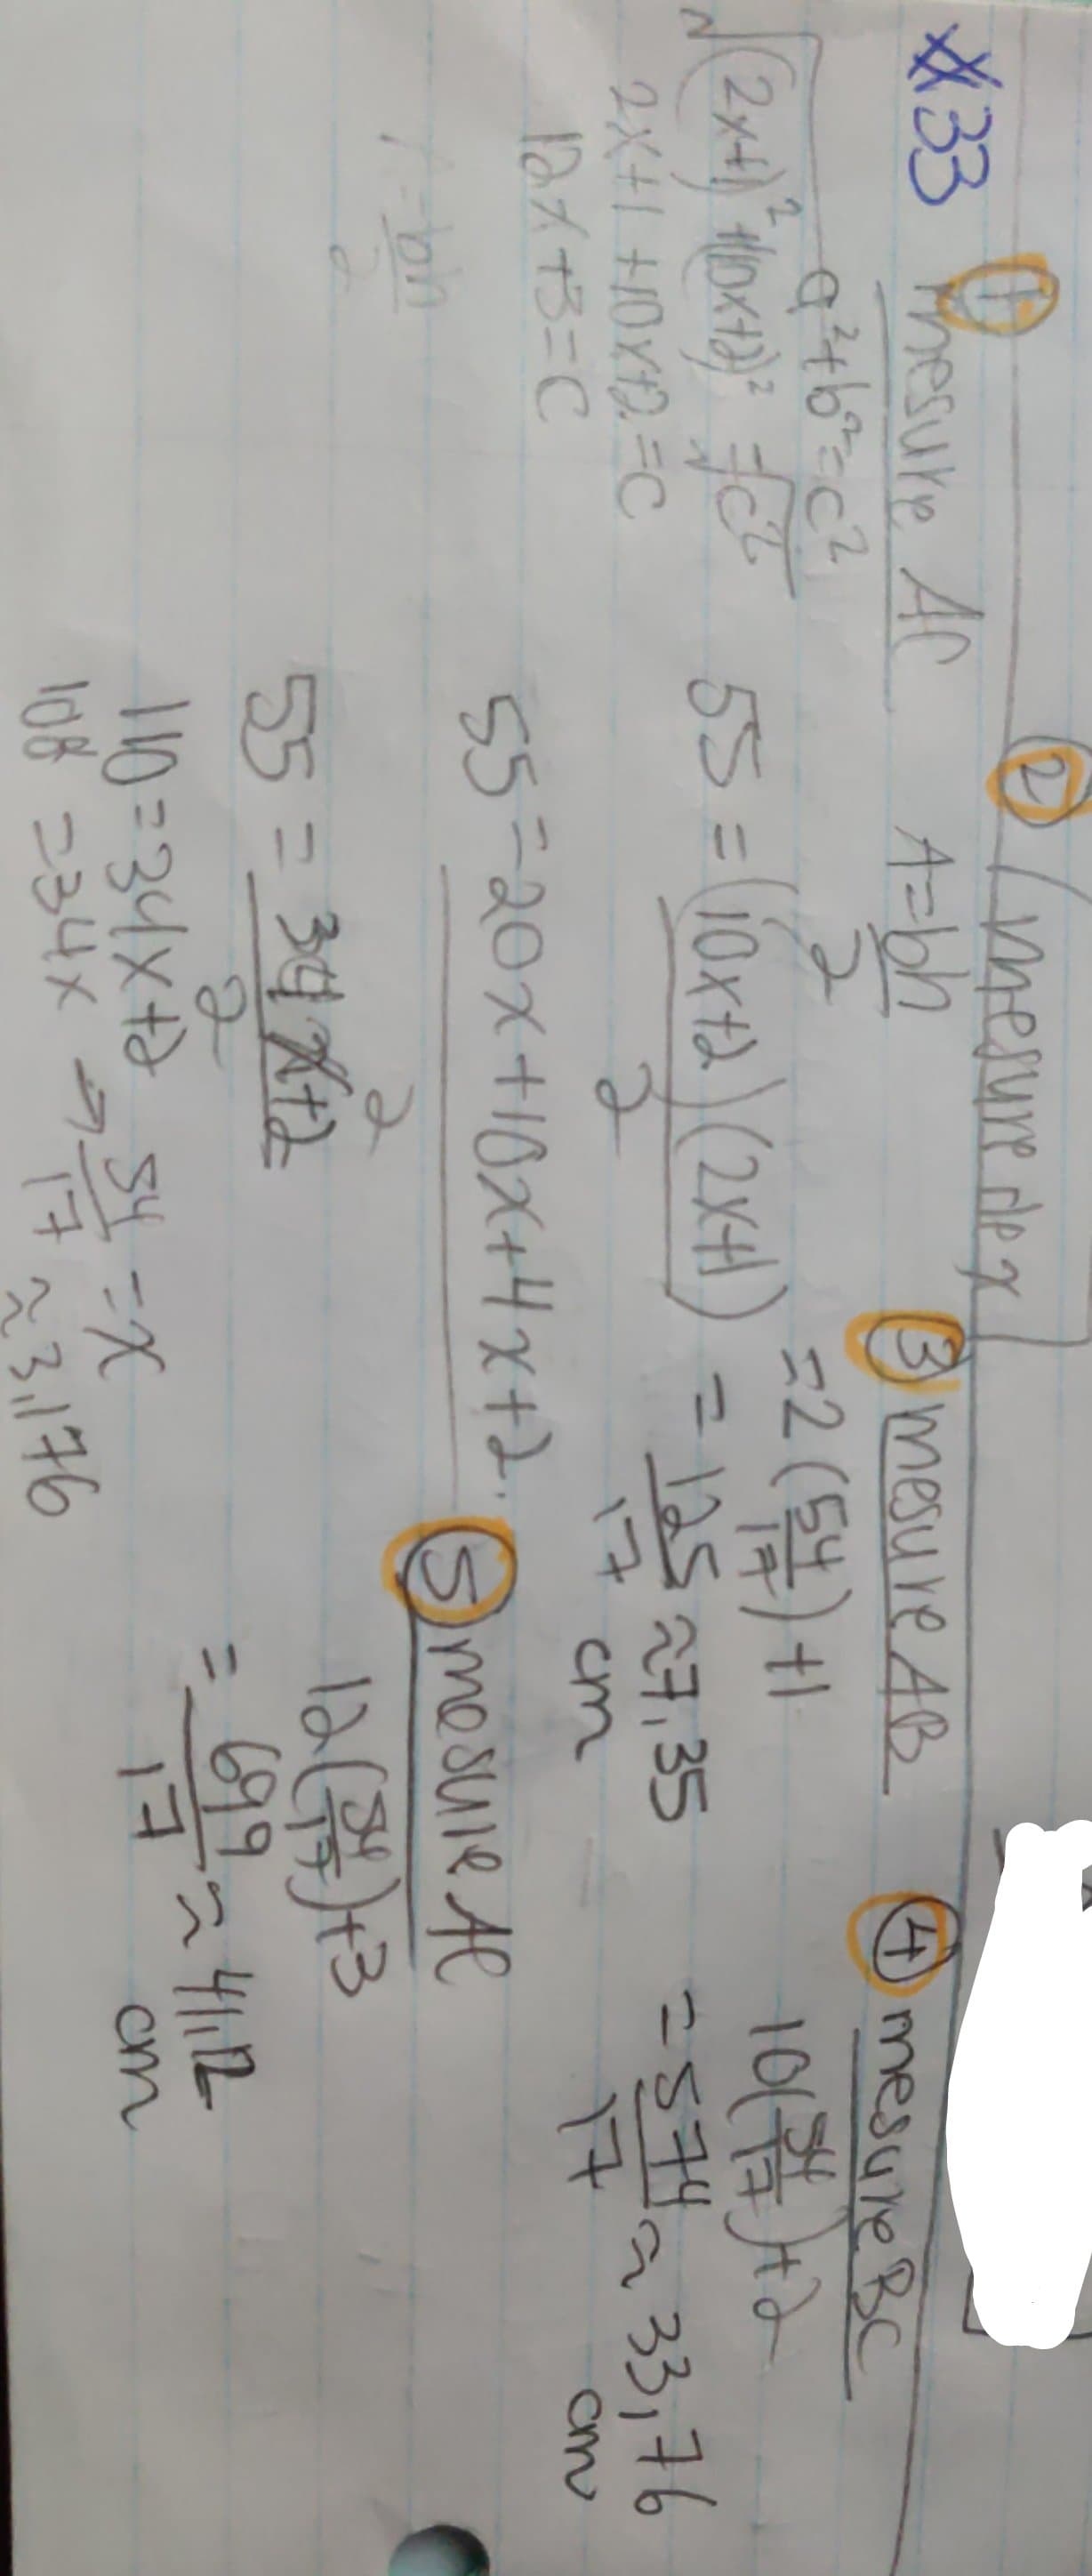 #33
① mesure AC
a²+b²=c²
√(2x+1)²+(10x+2)² = √c²
2x+1+10x+2=c
12x+3=c
A=bh
2
② mesure de x
A=bh
2
55=(10x+2)(2x+1)
2
55=20x+10x+4x+2
2
55=34x+2
2
110=34x+2
108=34x → 54/17=x
≈3,176
③ mesure AB
=2(54/17)+1
=125/17≈7,35
cm
④ mesure BC
10(54/17)+2
=574/17≈33,76
cm
⑤ mesure AC
12(54/17)+3
=699/17≈41,12
cm